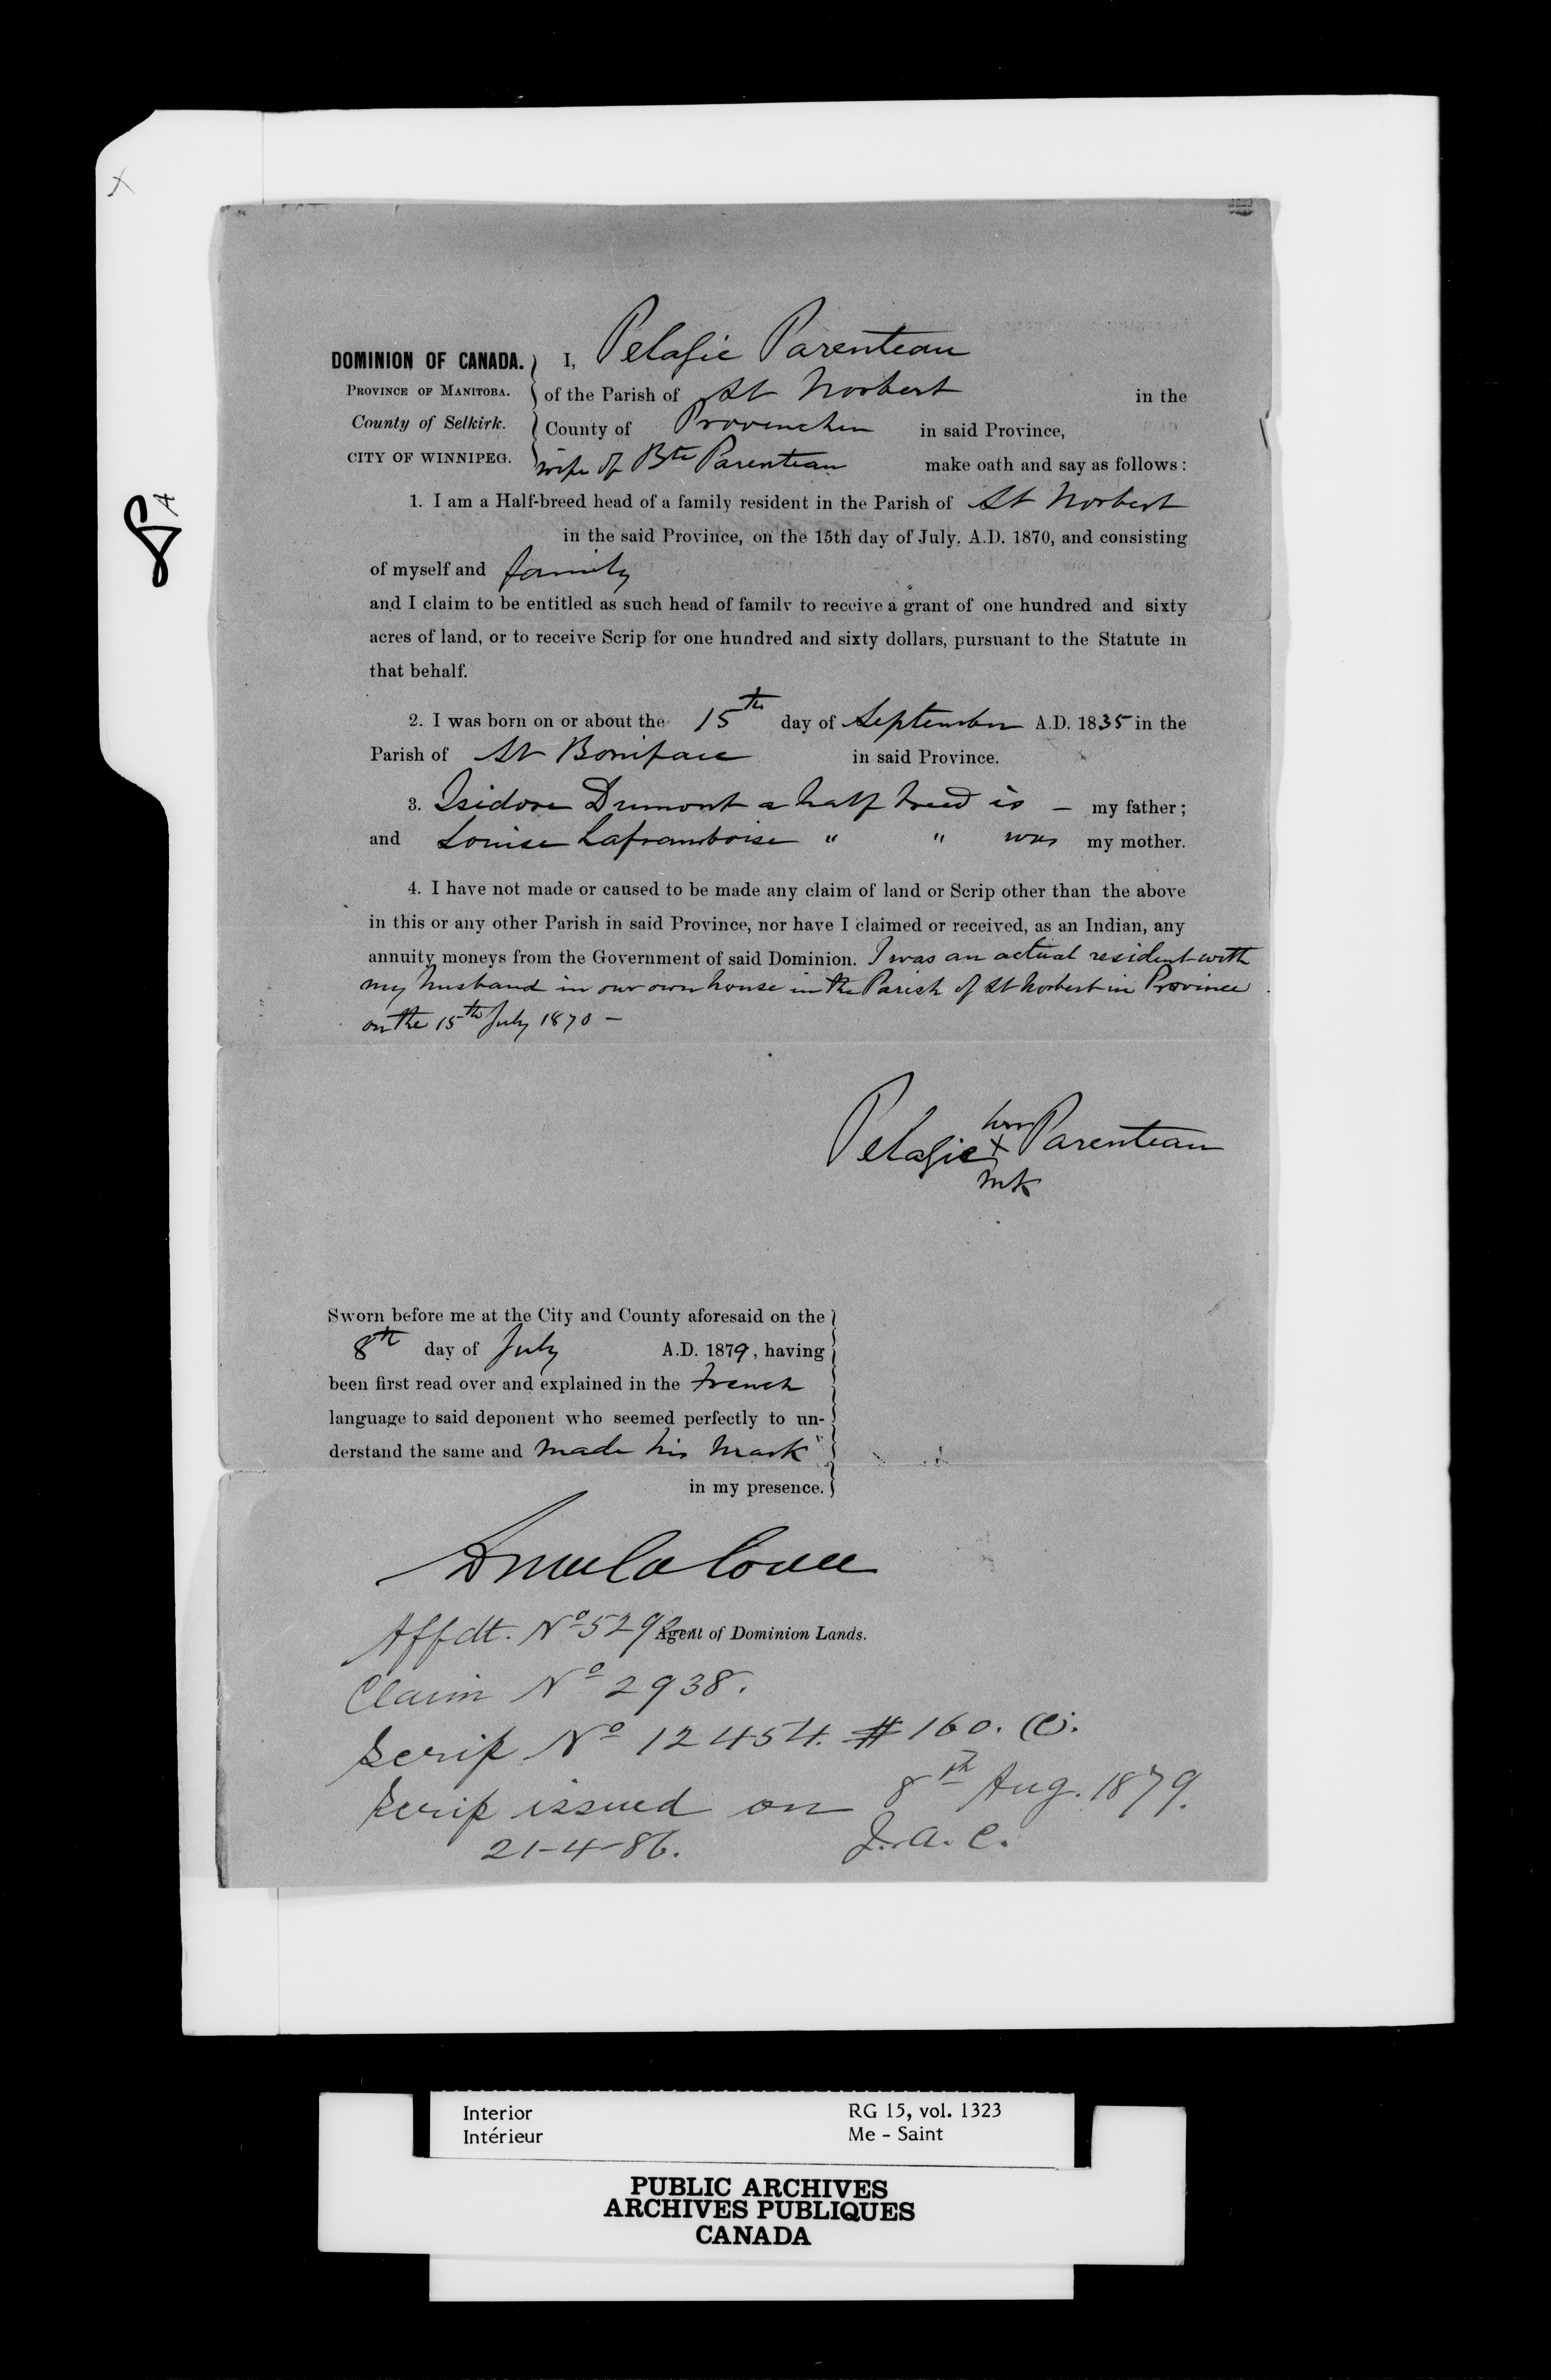 DOMINION OF CANADA. I, Pelagie Parenteau
PROVINCE OF MANITOBA. of the Parish of St Norbert in the
County of Selkirk. County of Provencher in said Province,
CITY OF WINNIPEG. wife of Bte Parenteau make oath and say as follows:
1. I am a Half-breed head of a family resident in the Parish of St Norbert
in the said Province, on the 15th day of July, A.D. 1870, and consisting
of myself and family
and I claim to be entitled as such head of family to receive a grant of one hundred and sixty
acres of land, or to receive Scrip for one hundred and sixty dollars, pursuant to the Statute in
that behalf.
2. I was born on or about the 15th day of September A.D. 1835 in the
Parish of St Boniface in said Province.
3. Isidore Dumont a half breed is — my father;
and Louise Laframboise " " was my mother.
4. I have not made or caused to be made any claim of land or Scrip other than the above
in this or any other Parish in said Province, nor have I claimed or received, as an Indian, any
annuity moneys from the Government of said Dominion. I was an actual resident with
my husband in our own house in the Parish of St Norbert in Province
on the 15th July 1870 —
her
Pelagie X Parenteau
mk
Sworn before me at the City and County aforesaid on the
8th day of July A.D. 1879, having
been first read over and explained in the French
language to said deponent who seemed perfectly to un-
derstand the same and made his mark
in my presence.
Affdt. No 529 Agent of Dominion Lands.
Claim No 2938.
Scrip No 12454. $160.
Scrip issued on 8th Aug. 1879.
21-4-86. J.A.C.
8A
X
Interior RG 15, vol. 1323
Intérieur Me - Saint
PUBLIC ARCHIVES
ARCHIVES PUBLIQUES
CANADA